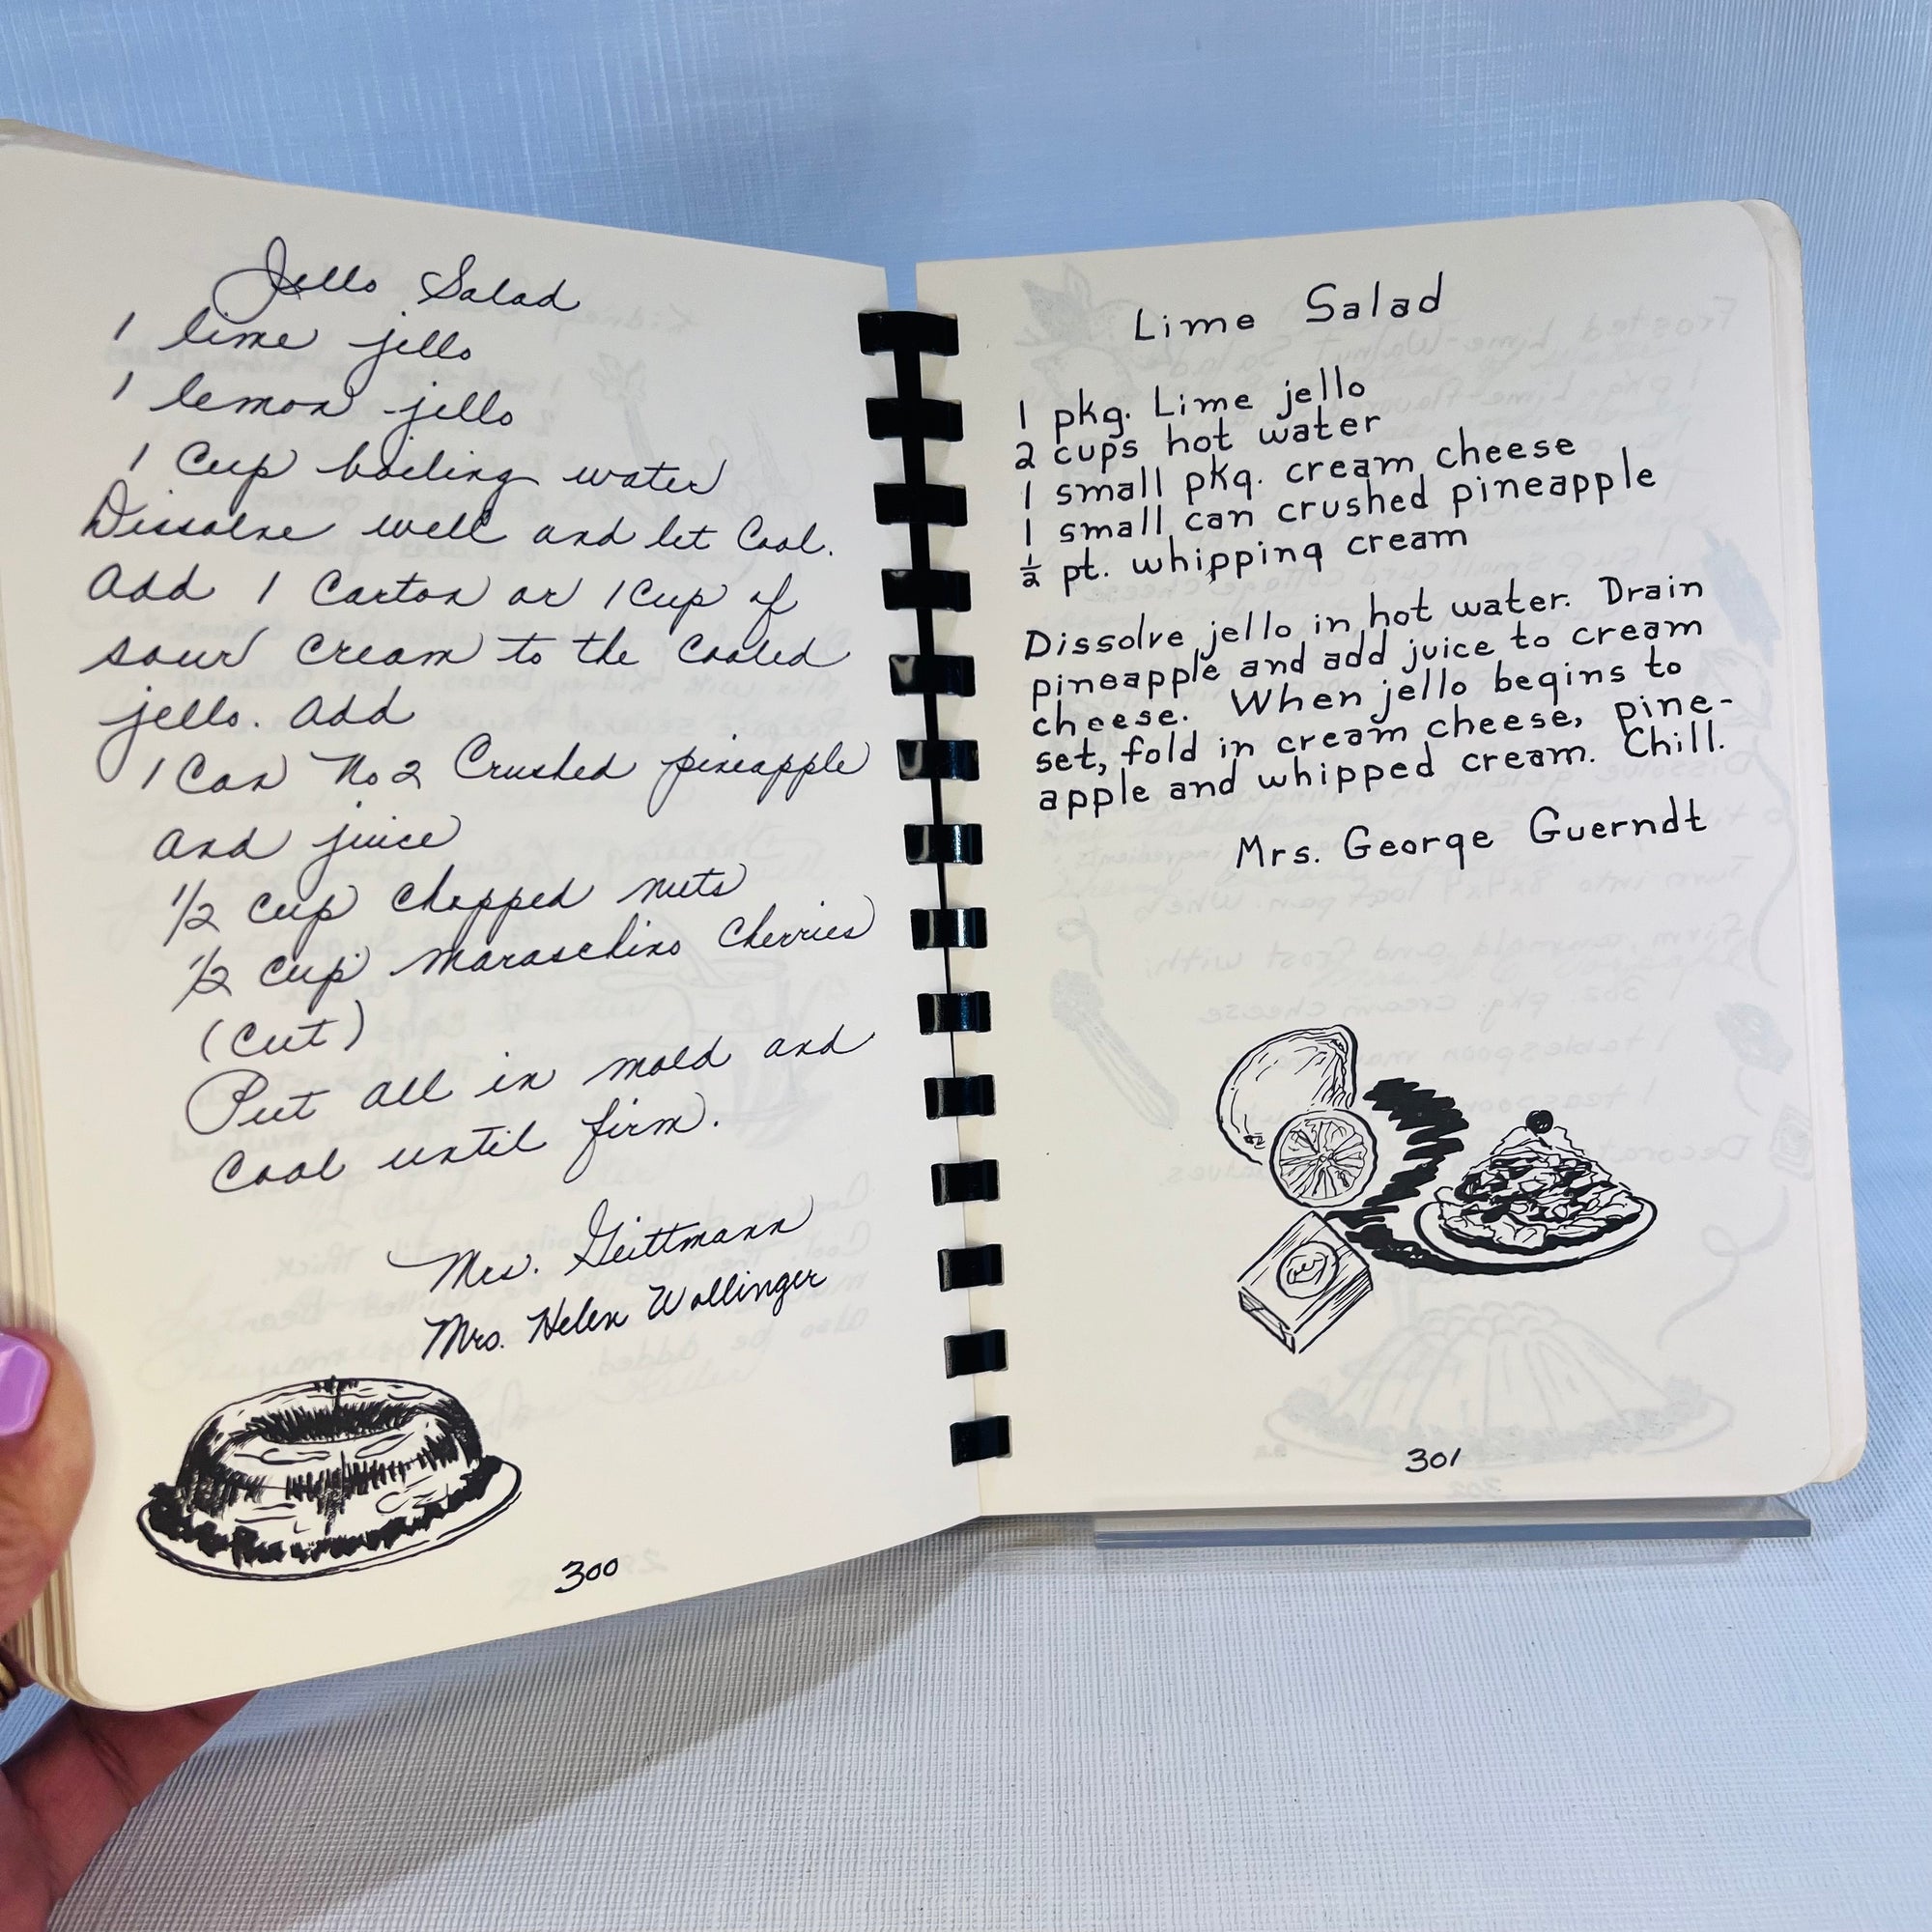 Jello Salad
1 lime jello
1 lemon jello
1 Cup boiling water
Dissolve well and let Cool.
Add 1 Carton or 1 Cup of
sour cream to the cooled
jello. Add
1 Can No 2 Crushed pineapple
and juice
1/2 cup chopped nuts
1/2 cup maraschino Cherries
(Cut)
Put all in mold and
Cool until firm.
Mrs. Geittmann
Mrs. Helen Wollinger
300
Lime Salad
1 pkg. Lime jello
2 cups hot water
1 small pkg. cream cheese
1 small can crushed pineapple
1/2 pt. whipping cream
Dissolve jello in hot water. Drain
pineapple and add juice to cream
cheese. When jello begins to
set, fold in cream cheese, pine-
apple and whipped cream. Chill.
Mrs. George Guerndt
301